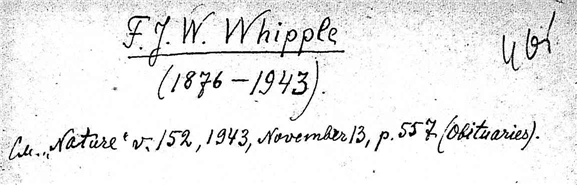 F. J. W. Whipple
(1876 – 1943).
См. „Nature“ v. 152, 1943, November 13, p. 557 (Obituaries).